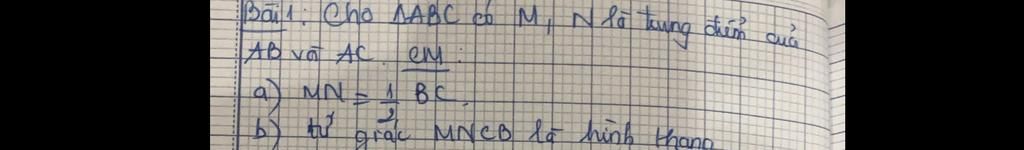 Bài 1: Cho ΔABC có M, N là trung điểm của
AB và AC. CM:
a) MN = 1/2 BC.
b) tứ giác MNCB là hình thang